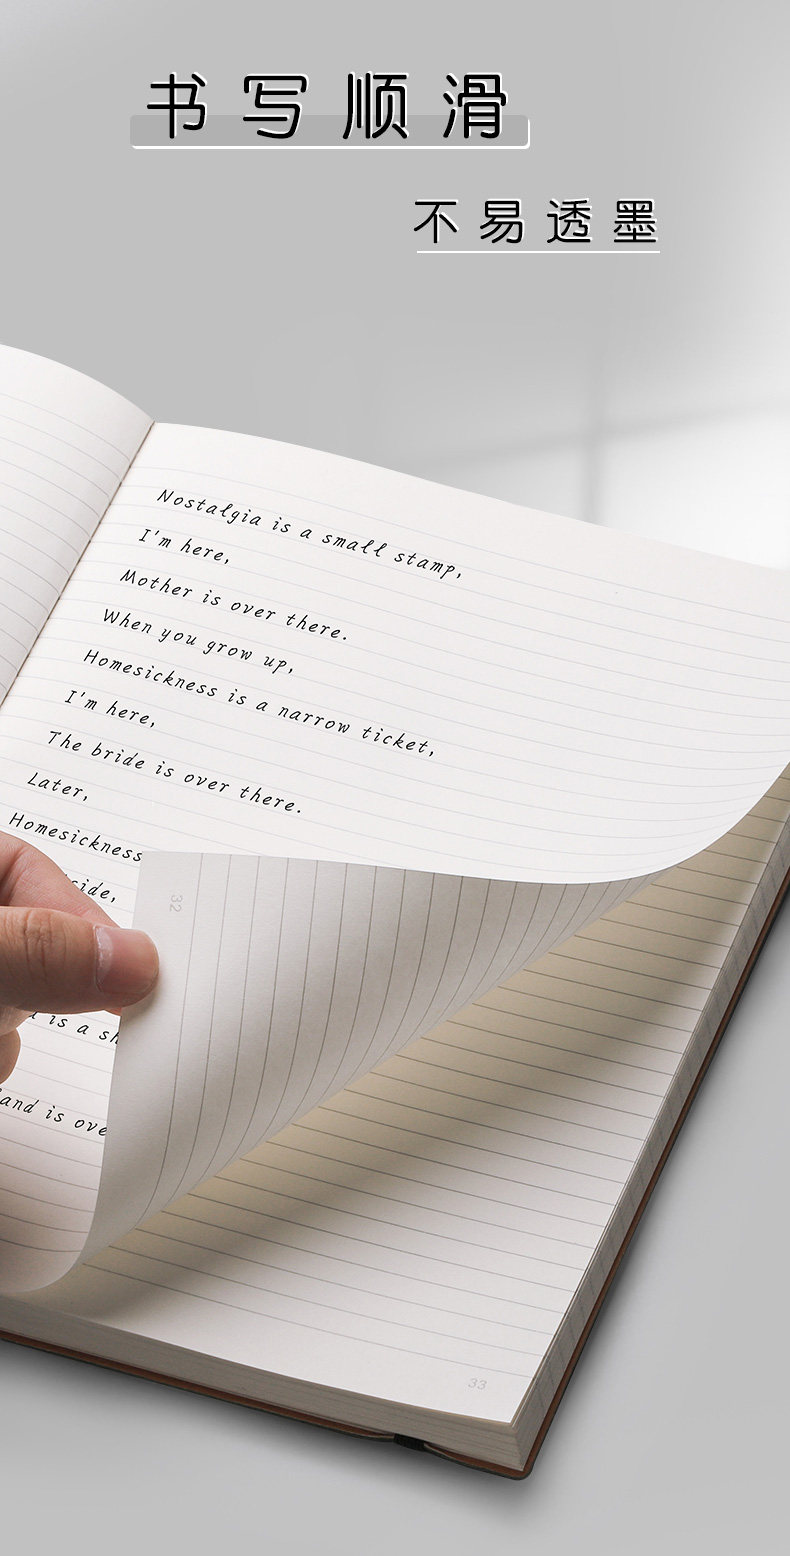 书写顺滑
不易透墨
Nostalgia is a small stamp,
I'm here,
Mother is over there.
When you grow up,
Homesickness is a narrow ticket,
I'm here,
The bride is over there.
Later,
Homesickness
is a
is
32
33